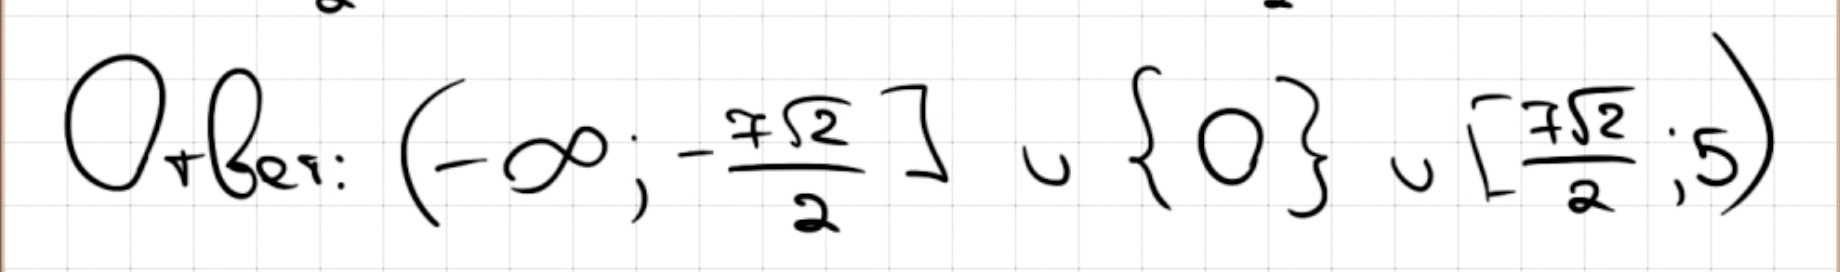 Ответ: (-∞; -7√2/2] ∪ {0} ∪ [7√2/2; 5)